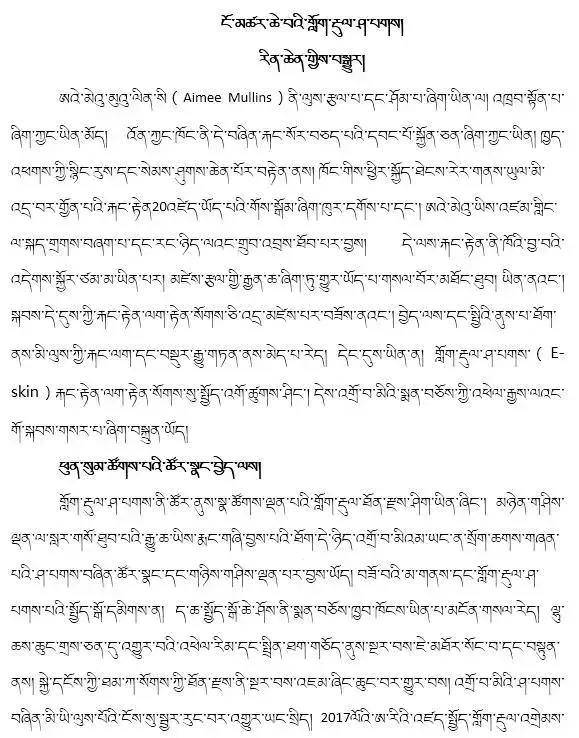 ངོ་མཚར་ཆེ་བའི་གློག་རྡུལ་ཤ་པགས།
རིན་ཆེན་གྱིས་བསྒྱུར།
ཨའེ་མེའུ་མུའུ་ལིན་སི ( Aimee Mullins ) ནི་ལུས་རྩལ་པ་དང་ཤོམ་པ་ཞིག་ཡིན་ལ། འཁྲབ་སྟོན་པ་
ཞིག་ཀྱང་ཡིན་མོད། འོན་ཀྱང་ཁོང་ནི་དེ་བཞིན་རྐང་སོར་བཅད་པའི་དབང་པོ་སྐྱོན་ཅན་ཞིག་ཀྱང་ཡིན། ཁྱད་
འཕགས་ཀྱི་སྙིང་རུས་དང་སེམས་ཤུགས་ཆེན་པོར་བརྟེན་ནས། ཁོང་གིས་ཕྱིར་སྐྱོད་ཐེངས་རེར་གནས་ཡུལ་མི་
འདྲ་བར་གྱོན་པའི་རྐང་རྟེན20འཛེད་ཡོད་པའི་གོས་སྒྲོམ་ཞིག་ཁུར་དགོས་པ་དང་། ཨའེ་མེའུ་ཡིས་འཛམ་གླིང་
ལ་སྐད་གྲགས་བཞག་པ་དང་རང་ཉིད་ལའང་གྲུབ་འབྲས་ཐོབ་པར་བྱས། དེ་ལས་རྐང་རྟེན་ནི་ཁོའི་བྱ་བའི་
འདེགས་སྐྱོར་ཙམ་མ་ཡིན་པར། མཛེས་རྩལ་གྱི་རྒྱན་ཆ་ཞིག་ཏུ་གྱུར་ཡོད་པ་གསལ་བོར་མཐོང་ཐུབ། ཡིན་ནའང་།
སྐབས་དེ་དུས་ཀྱི་རྐང་རྟེན་ལག་རྟེན་སོགས་ཅི་འདྲ་མཛེས་པར་བཟོས་ནའང་། བྱེད་ལས་དང་སྤྱིའི་ནུས་པ་ཐོག་
ནས་མི་ལུས་ཀྱི་རྐང་ལག་དང་བསྡུར་རྒྱུ་གཏན་ནས་མེད་པ་རེད། དེང་དུས་ཡིན་ན། གློག་རྡུལ་ཤ་པགས་ ( E-
skin ) རྐང་རྟེན་ལག་རྟེན་སོགས་སུ་སྤྱོད་འགོ་ཚུགས་ཤིང་། དེས་འགྲོ་བ་མིའི་སྨན་བཅོས་ཀྱི་འཕེལ་རྒྱས་ལའང་
གོ་སྐབས་གསར་པ་ཞིག་བསྐྲུན་ཡོད།
ཕུན་སུམ་ཚོགས་པའི་ཚོར་སྣང་བྱེད་ལས།
གློག་རྡུལ་ཤ་པགས་ནི་ཚོར་ནུས་སྣ་ཚོགས་ལྡན་པའི་གློག་རྡུལ་ཐོན་རྫས་ཤིག་ཡིན་ཞིང་། མཉེན་གཤིས་
ལྡན་ལ་སླར་གསོ་ཐུབ་པའི་རྒྱུ་ཆ་ཡིས་རྨང་གཞི་བྱས་པའི་ཐོག་དེ་ཉིད་འགྲོ་བ་མིའམ་ཡང་ན་སྲོག་ཆགས་གཞན་
པའི་ཤ་པགས་བཞིན་ཚོར་སྣང་དང་གཉིས་གཤིས་ལྡན་པར་བྱས་ཡོད། བཟོ་བའི་མ་གནས་དང་གློག་རྡུལ་ཤ་
པགས་པའི་སྤྱོད་སྒོ་དམིགས་ན། ད་ཆ་སྤྱོད་སྒོ་ཆེ་ཤོས་ནི་སྨན་བཅོས་ཁྱབ་ཁོངས་ཡིན་པ་མངོན་གསལ་རེད། ལྷུ་
ཆས་ཆུང་གྲས་ཅན་དུ་འགྱུར་བའི་འཕེལ་རིམ་དང་སྤྲིན་ཐག་གཅོད་ནུས་སྔར་བས་ཇེ་མཐོར་སོང་བ་དང་བསྟུན་
ནས། སྐྱེ་དངོས་ཀྱི་ཐམ་ཀ་སོགས་ཀྱི་ཐོན་རྫས་ནི་སྔར་བས་འཇམ་ཞིང་ཆུང་བར་གྱུར་བས། འགྲོ་བ་མིའི་ཤ་པགས་
བཞིན་མི་ཡི་ལུས་པོའི་ངོས་སུ་སྦྱར་རུང་བར་འགྱུར་ཡང་སྲིད། 2017ལོའི་ཨ་རིའི་འཛད་སྤྱོད་གློག་རྡུལ་འགྲེམས་